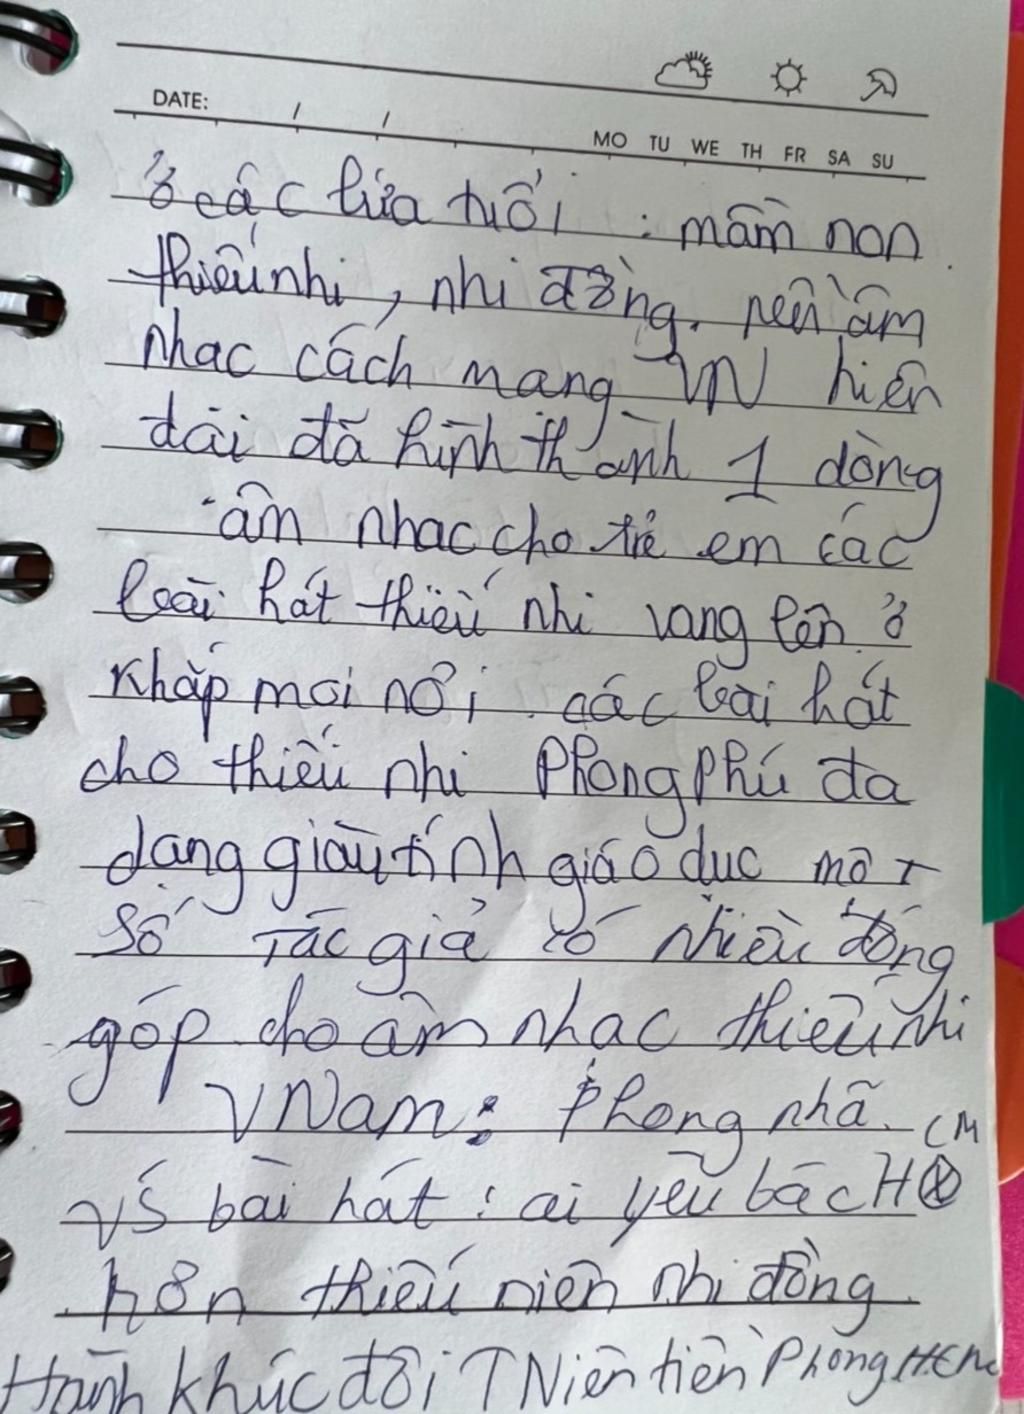 DATE: / /
MO TU WE TH FR SA SU
ở các lứa tuổi : mầm non
thiếu nhi, nhi đồng. nền âm
nhac cách mang VN hiên
đai đã hình thành 1 dòng
âm nhac cho trẻ em các
bài hát thiếu nhi vang lên ở
khắp moi nơi. các bài hát
cho thiếu nhi Phong phú đa
dang giàu tính giáo duc môt
số Tác giả có nhiều đóng
góp cho âm nhac thiếu nhi
VNam: Phong nhã.
CM
vs bài hát : ai yêu bác H
hơn thiếu niên nhi đồng.
Hành khúc đôi TNiên tiền Phong HCM